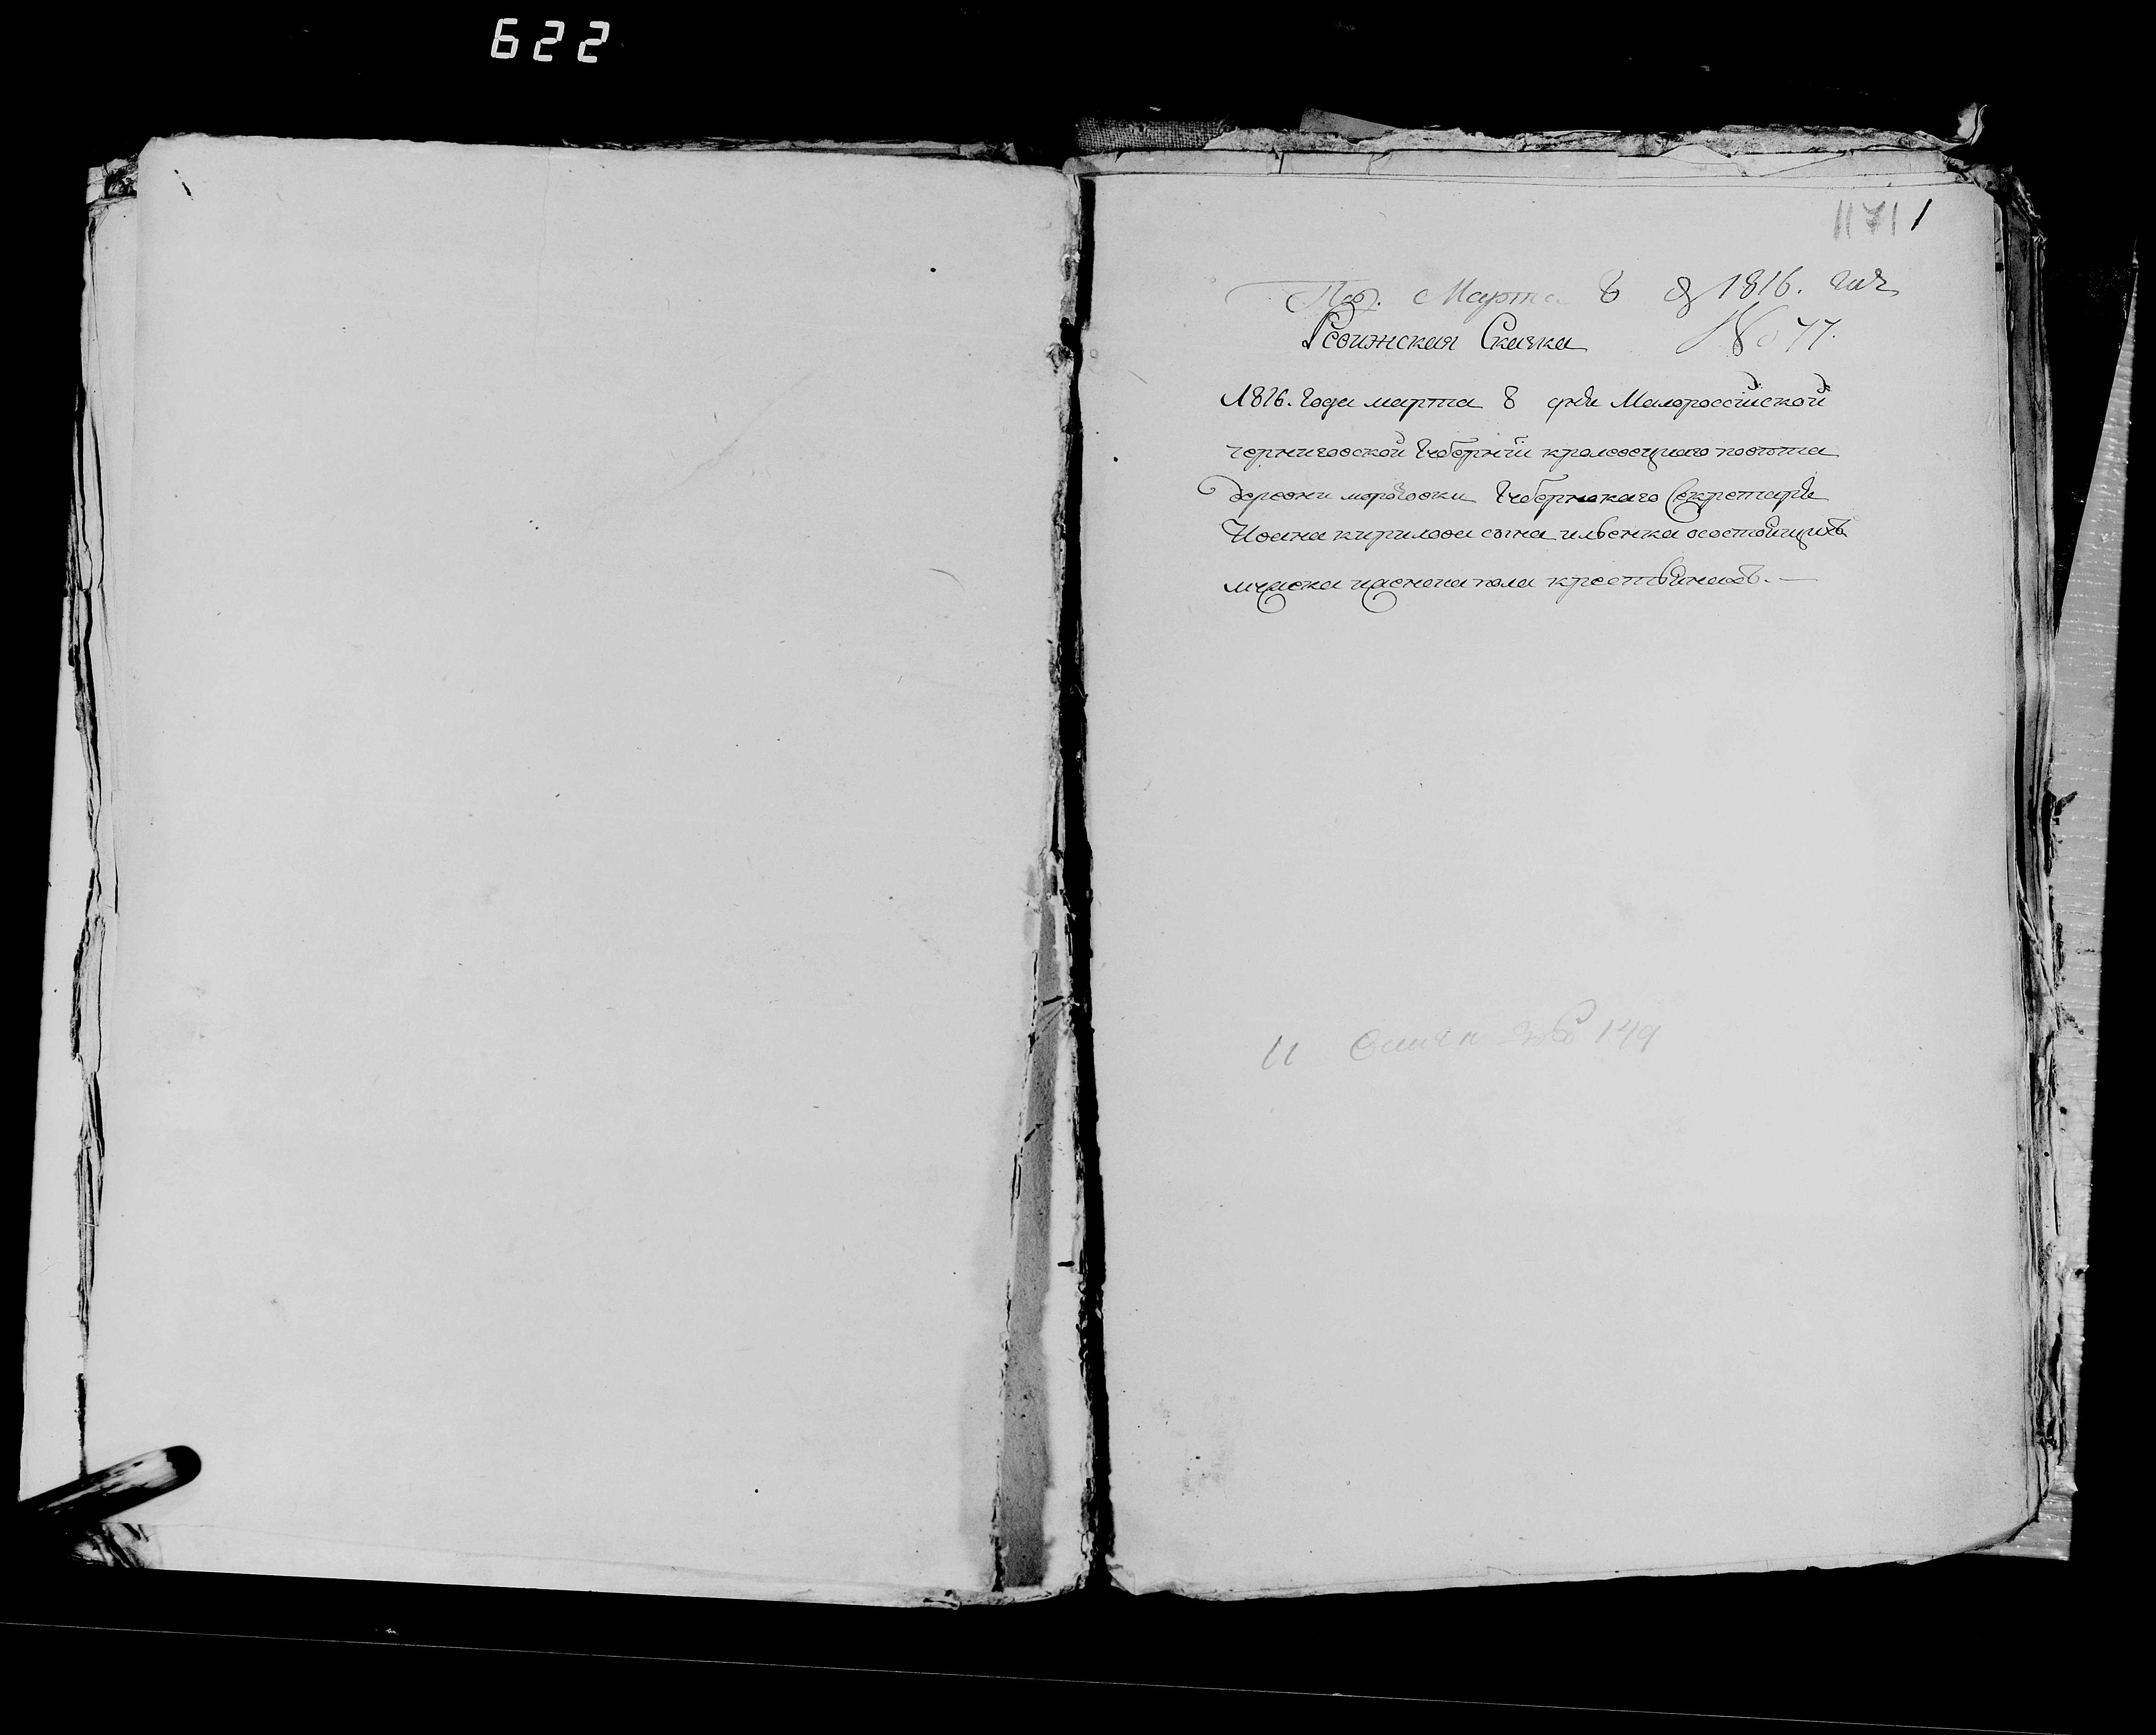 622
1171 1
Под. Марта 8 д 1816. года
Ревижская Сказка № 77.
1816. года марта 8 дня Малороссійской
черниговской Губерніи кролевецкаго повѣта
деревни морозовки Губернскаго Секретаря
Ивана кирилова сына ильенка о состоящихъ
мужеска и женска пола крестьянахъ. —
11 149